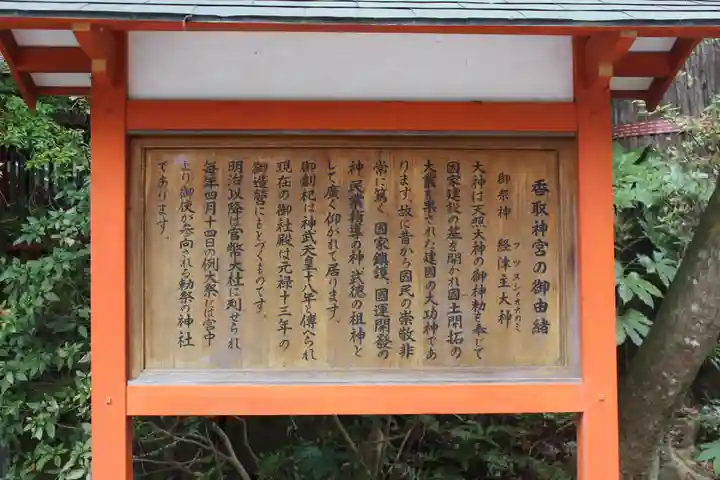 香取神宮の御由緒
御祭神 経津主大神
フツヌシノオオカミ
大神は天照大神の御神勅を奉じて
國家建設の基を開かれ國土開拓の
大業を果された建國の大功神であ
ります。故に昔から國民の崇敬非
常に篤く、國家鎮護、國運開発の
神、民業指導の神、武徳の祖神と
して廣く仰がれて居ります。
御創祀は神武天皇十八年と傳へられ
現在の御社殿は元禄十三年の
御造営にもとづくものです。
明治以降は官幣大社に列せられ
毎年四月十四日の例大祭には宮中
より御使が参向される勅祭の神社
であります。